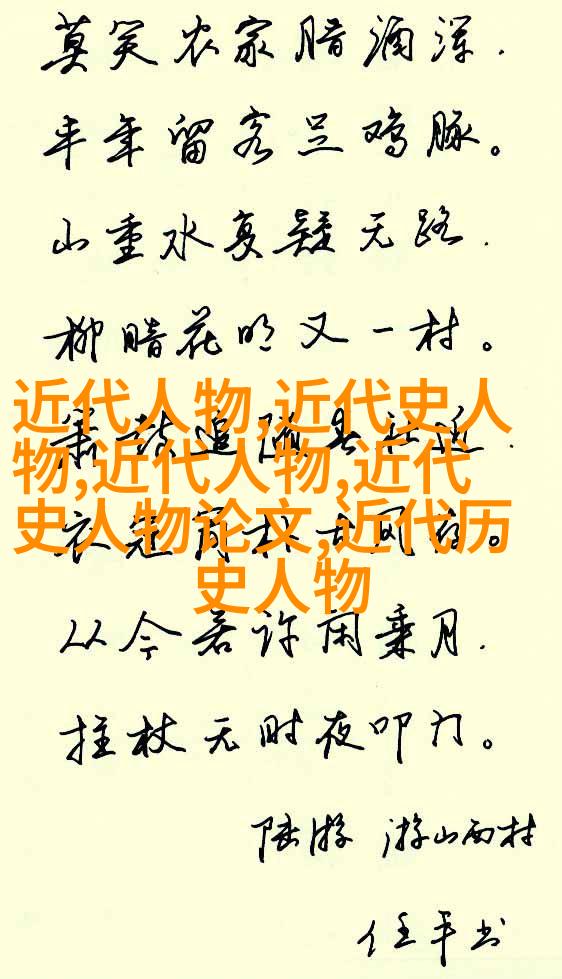 莫笑农家腊酒浑.
丰年留客足鸡豚。
山重水复疑无路.
柳暗花明又一村。
近代人物,近代史人
物,近代人物,近代
史人物论文,近代历
史人物
箫鼓追随春社近.
衣冠简朴古风存。
从今若许闲乘月.
拄杖无时夜叩门。
陆游 游山西村
任平书